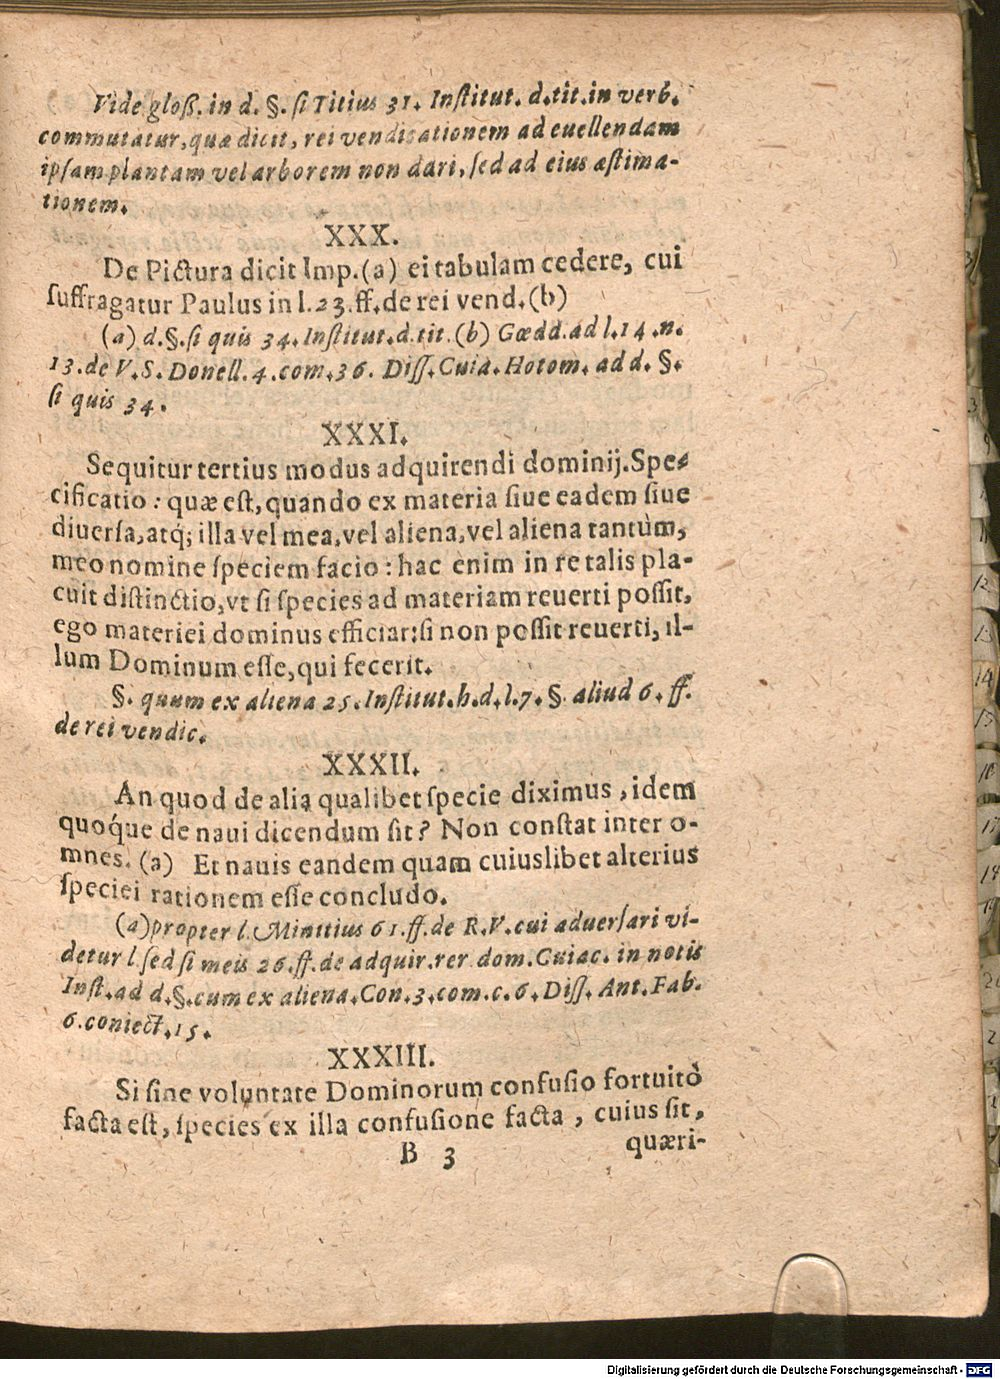 Vide gloß. in d. §. ſi Titius 31. Inſtitut. d. tit. in verb.
commutatur, quæ dicit, rei vendicationem ad euellendam
ipſam plantam vel arborem non dari, ſed ad eius æſtima-
tionem.
XXX.
De Pictura dicit Imp. (a) ei tabulam cedere, cui
ſuffragatur Paulus in l. 23. ff. de rei vend. (b)
(a) d. §. ſi quis 34. Inſtitut. d. tit. (b) Gœdd. ad l. 14. n.
13. de V. S. Donell. 4. com. 36. Diſſ. Cuia. Hotom. ad d. §.
ſi quis 34.
XXXI.
Sequitur tertius modus adquirendi dominij. Spe-
cificatio: quæ eſt, quando ex materia ſiue eadem ſiue
diuerſa, atq; illa vel mea, vel aliena, vel aliena tantùm,
meo nomine ſpeciem facio: hac enim in re talis pla-
cuit diſtinctio, vt ſi ſpecies ad materiam reuerti poſſit,
ego materiei dominus efficiar: ſi non poſſit reuerti, il-
lum Dominum eſſe, qui fecerit.
§. quum ex aliena 25. Inſtitut. h. d. l. 7. §. aliud 6. ff.
de rei vendic.
XXXII.
An quod de alia qualibet ſpecie diximus, idem
quoq́ue de naui dicendum ſit? Non conſtat inter o-
mnes. (a) Et nauis eandem quam cuiuslibet alterius
ſpeciei rationem eſſe concludo.
(a) propter l. Minitius 61. ff. de R. V. cui aduerſari vi-
detur l. ſed ſi meis 26. ff. de adquir. rer dom. Cuiac. in notis
Inſt. ad d. §. cum ex aliena. Con. 3. com. c. 6. Diſſ. Ant. Fab.
6. coniect. 15.
XXXIII.
Si ſine voluntate Dominorum confuſio fortuitò
facta eſt, ſpecies ex illa confuſione facta, cuius ſit,
B 3 quæri-
Digitalisierung gefördert durch die Deutsche Forschungsgemeinschaft - DFG